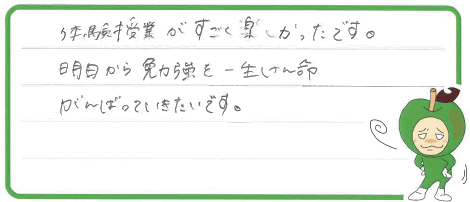 体験授業がすごく楽しかったです。
明日から勉強を一生けん命
がんばっていきたいです。